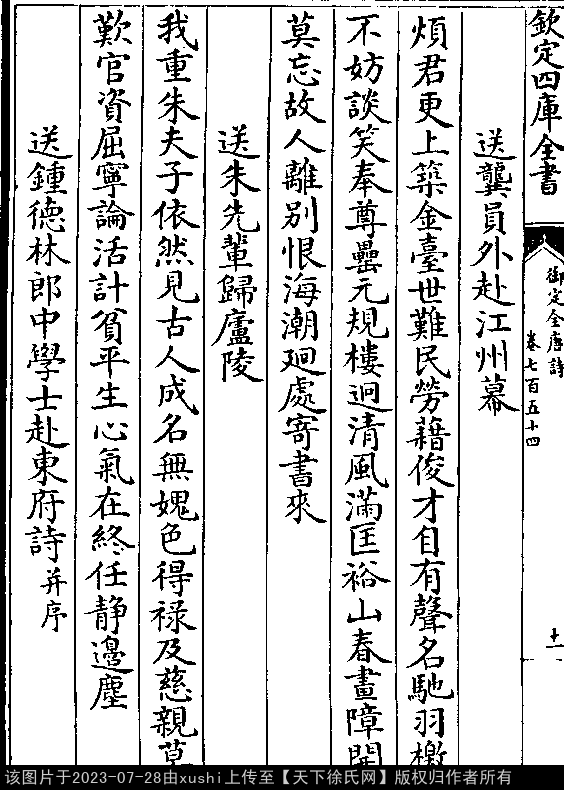 欽定四庫全書
御定全唐詩
卷七百五十四
十一
送龔員外赴江州幕
煩君更上築金臺世難民勞藉俊才自有聲名馳羽檄
不妨談笑奉尊罍元規樓迥清風滿匡裕山春畫障開
莫忘故人離别恨海潮迴處寄書來
送朱先輩歸廬陵
我重朱夫子依然見古人成名無媿色得禄及慈親莫
歎官資屈寧論活計貧平生心氣在終任静邊塵
送鍾德林郎中學士赴東府詩并序
该图片于2023-07-28由xushi上传至【天下徐氏网】版权归作者所有